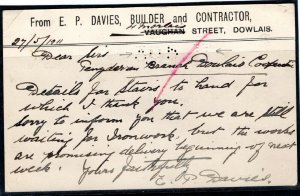 From E. P. DAVIES, BUILDER and CONTRACTOR,
VAUGHAN STREET, DOWLAIS.
27/5/1911
Dear Sirs
Branch Dowlais
Details for Stairs to hand for
which I thank you.
sorry to inform you that we are still
waiting for Ironwork, but the works
are promising delivery beginning of next
week. Yours faithfully
E. P. Davies.